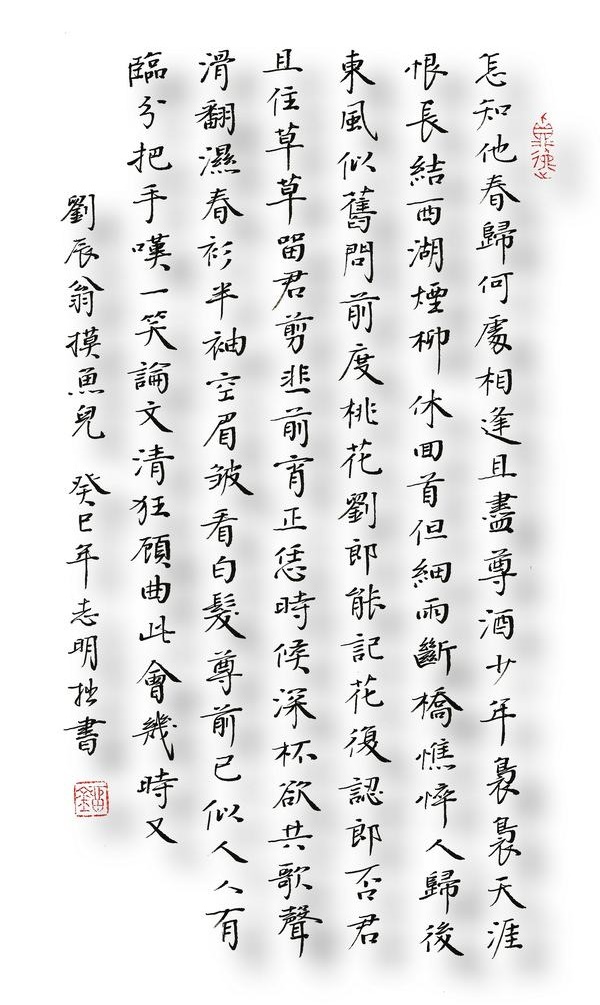 怎知他春歸何處相逢且盡尊酒少年裊裊天涯
恨長結西湖煙柳休回首但細雨斷橋憔悴人歸後
東風似舊問前度桃花劉郎能記花復認郎否君
且住草草留君剪韭前宵正恁時候深杯欲共歌聲
滑翻濕春衫半袖空眉皺看白髮尊前已似人人有
臨分把手嘆一笑論文清狂顧曲此會幾時又
劉辰翁摸魚兒 癸巳年志明拙書